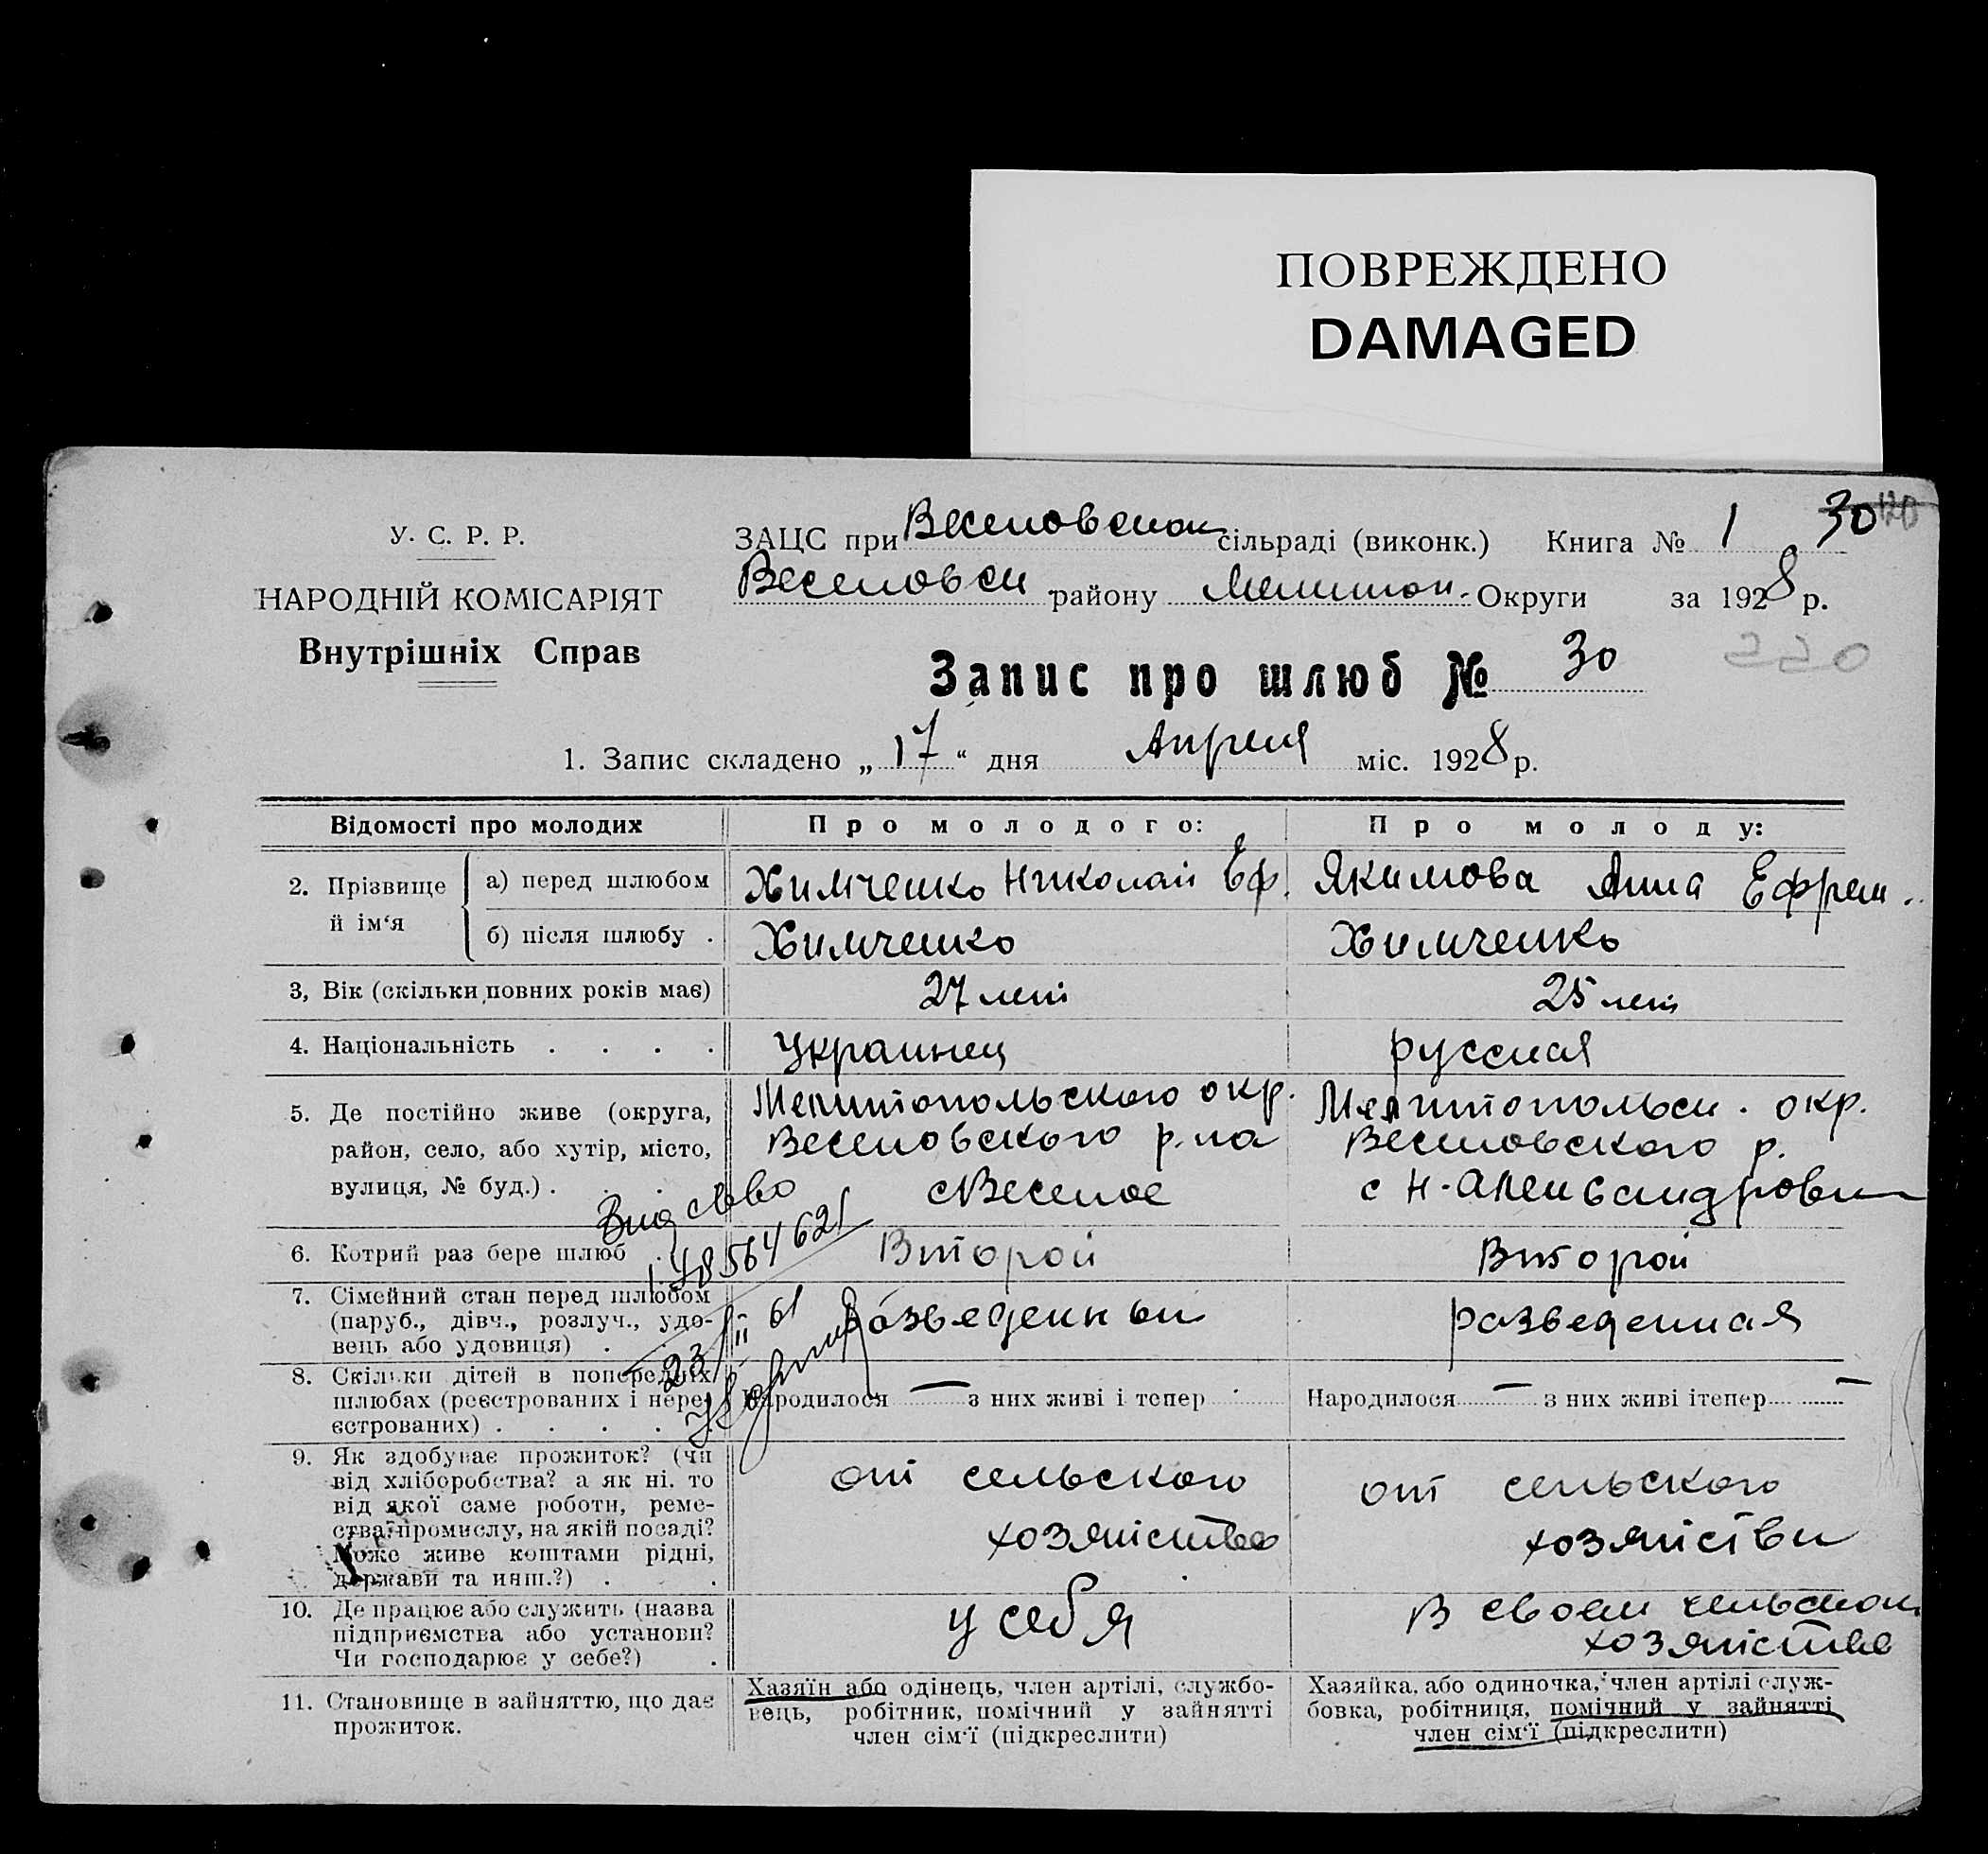 ПОВРЕЖДЕНО
DAMAGED
У. С. Р. Р.
НАРОДНІЙ КОМІСАРІЯТ
Внутрішніх Справ
ЗАЦС при Веселовском сільраді (виконк.) Книга № 1 30
Веселовск району Мелитоп. Округи за 1928 р.
220
Запис про шлюб № 30
1. Запис складено „17“ дня Апреля міс. 1928 р.
Відомості про молодих
Про молодого:
Про молоду:
2. Прізвище й ім‘я
а) перед шлюбом
Химченко Николай Еф.
Якимова Анна Ефрем..
б) після шлюбу .
Химченко
Химченко
3, Вік (скільки повних років має)
27 лет
25 лет
4. Національність . . . .
Украинец
русская
5. Де постійно живе (округа,
район, село, або хутір, місто,
вулиця, № буд.) .
Мелитопольского окр.
Веселовского р-на
с Веселое
Мелитопольск. окр.
Веселовского р.
с Н-Александровк
6. Котрий раз бере шлюб .
Второй
Второй
7. Сімейний стан перед шлюбом
(паруб., дівч., розлуч., удо-
вець або удовиця) .
разведенный
разведенная
Вид сво
1 48564621
23/II 61
8. Скільки дітей в попередніх
шлюбах (реєстрованих і нере-
єстрованих) . . . .
Народилося — з них живі і тепер
Народилося — з них живі ітепер —
9. Як здобуває прожиток? (чи
від хліборобства? а як ні. то
від якої саме роботи, реме-
ства, промислу, на якій посаді?
Може живе коштами рідні,
держави та инш.?) . .
от сельского
хозяйства
от сельского
хозяйства
10. Де працює або служить (назва
підприємства або установи?
Чи господарює у себе?) .
у себя
В своем сельском
хозяйстве
11. Становище в зайняттю, що дає
прожиток.
Хазяїн або одінець, член артілі, службо-
вець, робітник, помічний у зайнятті
член сім‘ї (підкреслити)
Хазяйка, або одиночка, член артілі служ-
бовка, робітниця, помічний у зайнятті
член сім‘ї (підкреслити)